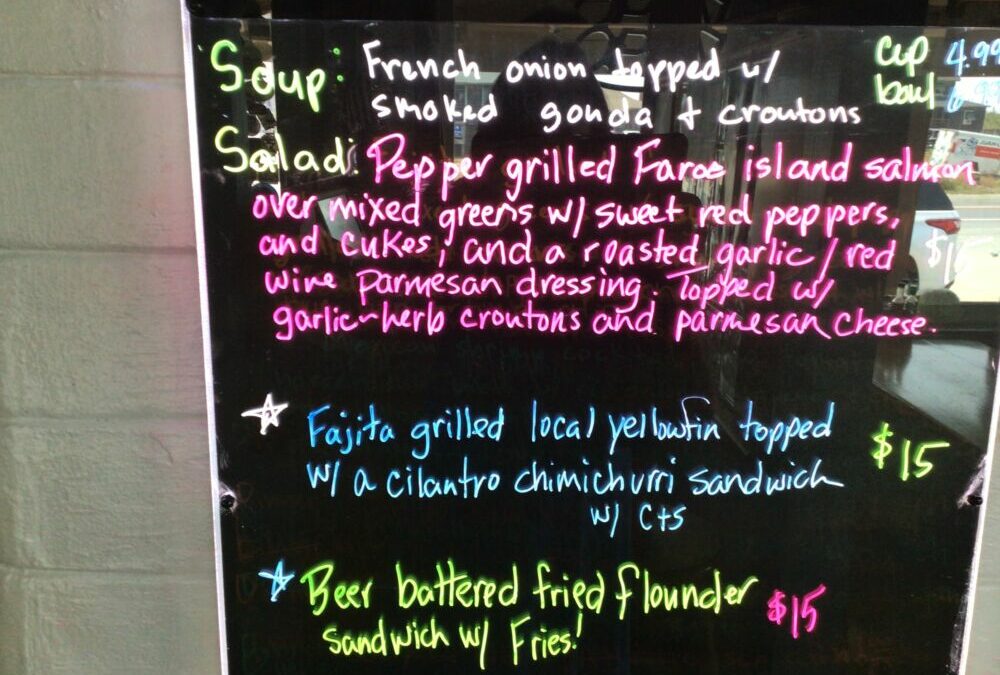 Soup: French onion topped w/ cup 4.99
smoked gouda + croutons bowl
Salad: Pepper grilled Faroe island salmon
over mixed greens w/ sweet red peppers,
and cukes, and a roasted garlic / red $15
wine parmesan dressing. Topped w/
garlic-herb croutons and parmesan cheese.
☆ Fajita grilled local yellowfin topped
w/ a cilantro chimichurri sandwich $15
w/ cts
☆ Beer battered fried flounder $15
sandwich w/ Fries!